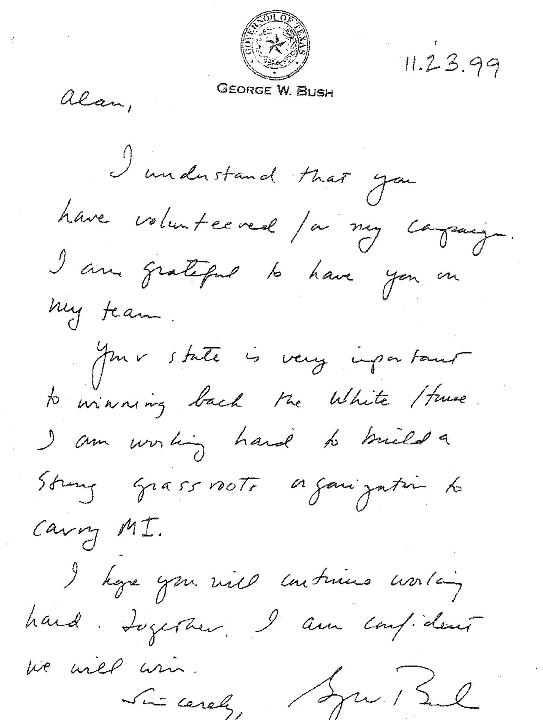 GOVERNOR OF TEXAS
GEORGE W. BUSH
11.23.99
Alan,
I understand that you
have volunteered for my campaign.
I am grateful to have you on
my team.
Your state is very important
to winning back the White House.
I am working hard to build a
strong grassroots organization to
carry MI.
I hope you will continue working
hard. Together, I am confident
we will win.
Sincerely,